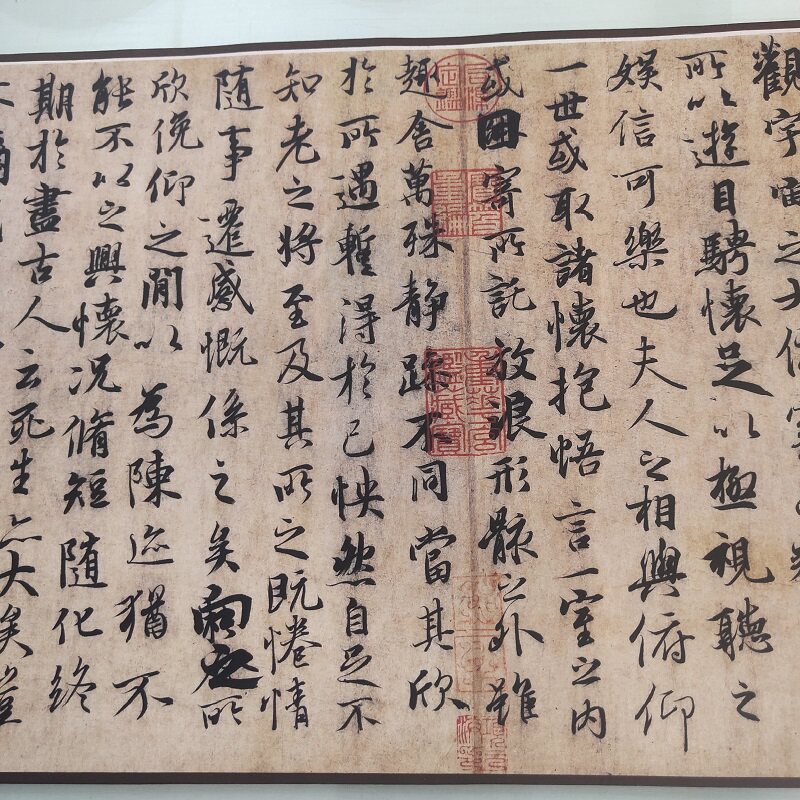 觀宇宙之大俯察
所以遊目騁懷足以極視聽之
娛信可樂也夫人之相與俯仰
一世或取諸懷抱悟言一室之内
或因寄所託放浪形骸之外雖
趣舍萬殊静躁不同當其欣
於所遇蹔得於己怏然自足不
知老之將至及其所之既惓情
隨事遷感慨係之矣向之所
欣俛仰之閒以為陳迹猶不
能不以之興懷况脩短隨化終
期於盡古人云死生亦大矣豈